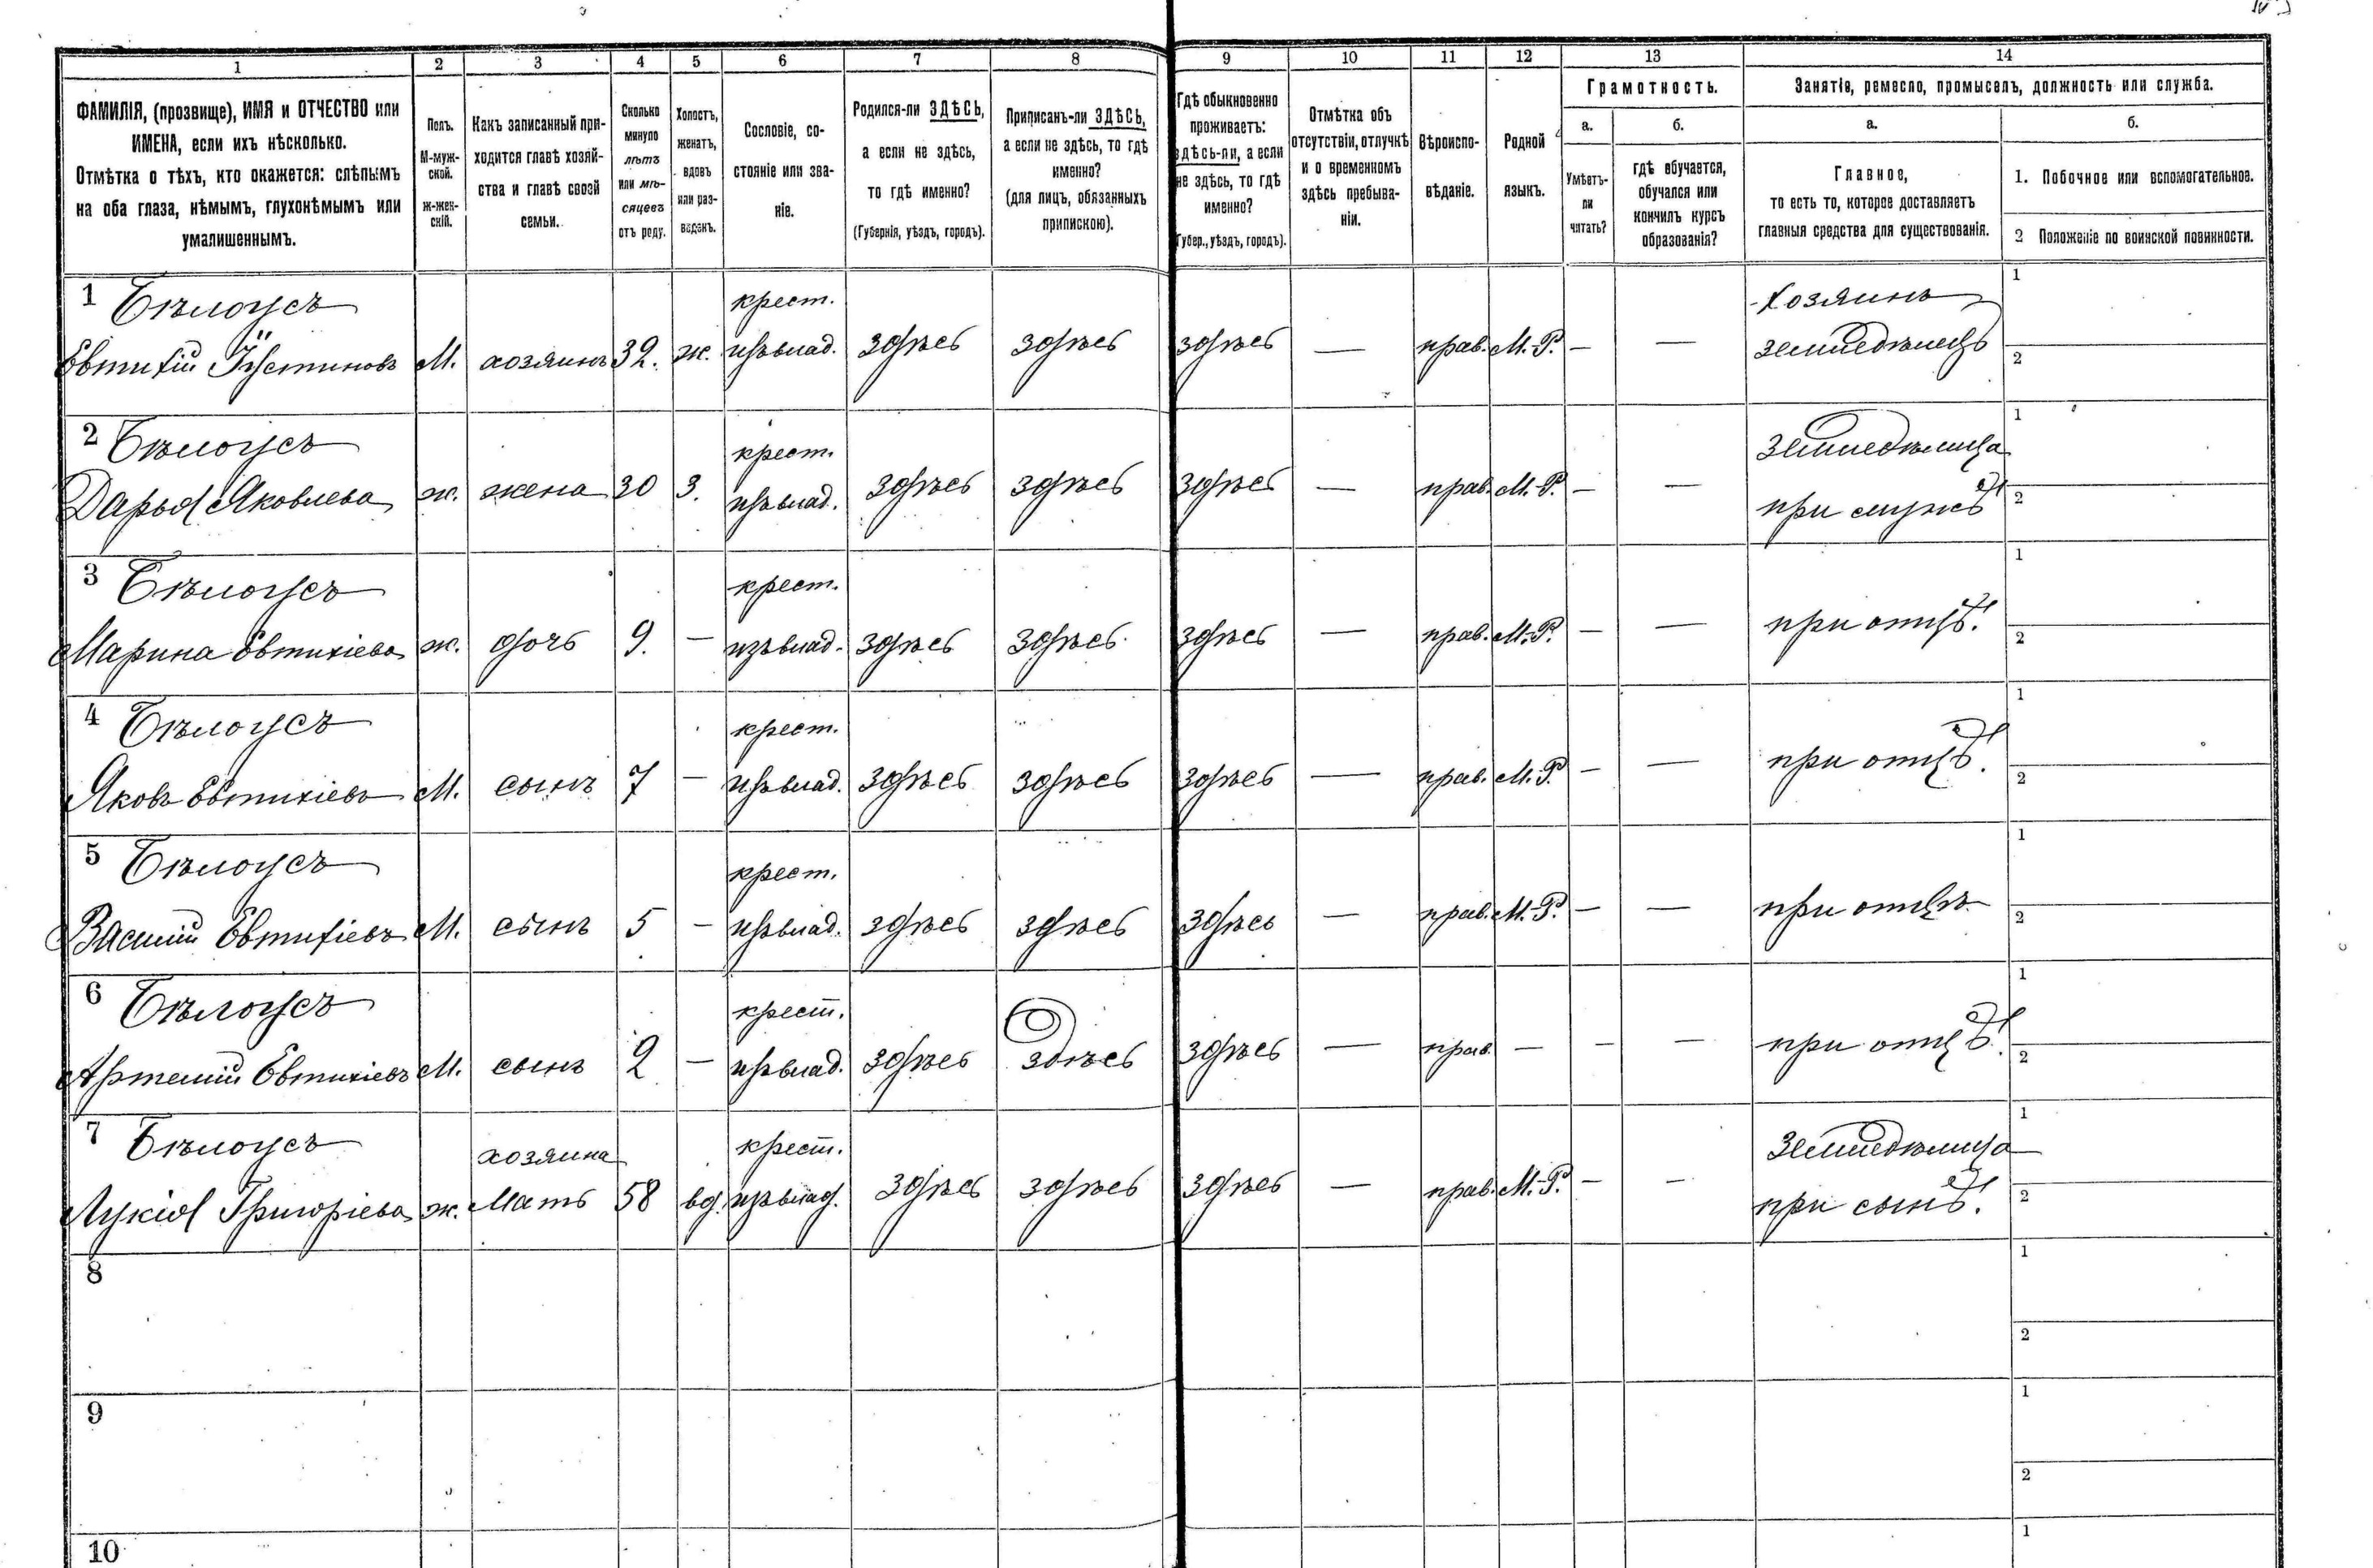 1 2 3 4 5 6 7 8 9 10 11 12 13 14
ФАМИЛІЯ, (прозвище), ИМЯ и ОТЧЕСТВО или
ИМЕНА, если ихъ нѣсколько.
Отмѣтка о тѣхъ, кто окажется: слѣпымъ
на оба глаза, нѣмымъ, глухонѣмымъ или
умалишеннымъ.
Полъ.
М-муж-
ской.
ж-жен-
скій.
Какъ записанный при-
ходится главѣ хозяй-
ства и главѣ своей
семьи.
Сколько
минуло
лѣтъ
или мѣ-
сяцевъ
отъ роду.
Холостъ,
женатъ,
вдовъ
или раз-
веденъ.
Сословіе, со-
стояніе или зва-
ніе.
Родился-ли ЗДѢСЬ,
а если не здѣсь,
то гдѣ именно?
(Губернія, уѣздъ, городъ).
Приписанъ-ли ЗДѢСЬ,
а если не здѣсь, то гдѣ
именно?
(для лицъ, обязанныхъ
припискою).
Гдѣ обыкновенно
проживаетъ:
здѣсь-ли, а если
не здѣсь, то гдѣ
именно?
Губер., уѣздъ, городъ).
Отмѣтка объ
отсутствіи, отлучкѣ
и о временномъ
здѣсь пребыва-
ніи.
Вѣроиспо-
вѣданіе.
Родной
языкъ.
Грамотность.
а.
Умѣетъ-
ли
читать?
б.
гдѣ обучается,
обучался или
кончилъ курсъ
образованія?
Занятіе, ремесло, промыселъ, должность или служба.
а.
Главное,
то есть то, которое доставляетъ
главныя средства для существованія.
б.
1. Побочное или вспомогательное.
2 Положеніе по воинской повинности.
1 Бѣлоусъ крест. Хозяинъ 1
Евтихій Іустиновъ М. хозяинъ 32. ж. изъ влад. здѣсь здѣсь здѣсь — прав. М.-Р. — — земледѣлецъ 2
2 Бѣлоусъ крест. земледѣлица 1
Дарья Яковлева ж. жена 30 З. изъ влад. здѣсь здѣсь здѣсь — прав. М.-Р. — — при мужѣ 2
3 Бѣлоусъ крест. 1
Марина Евтихіева ж. дочь 9. — изъ влад. здѣсь здѣсь здѣсь — прав. М.-Р. — — при отцѣ. 2
4 Бѣлоусъ крест. 1
Яковъ Евтихіевъ М. сынъ 7 — изъ влад. здѣсь здѣсь здѣсь — прав. М.-Р. — — при отцѣ. 2
5 Бѣлоусъ крест. 1
Василій Евтихіевъ М. сынъ 5 — изъ влад. здѣсь здѣсь здѣсь — прав. М.-Р. — — при отцѣ 2
6 Бѣлоусъ крест. 1
Артемій Евтихіевъ М. сынъ 2 — изъ влад. здѣсь здѣсь здѣсь — прав. — — — при отцѣ. 2
7 Бѣлоусъ хозяина крест. земледѣлица 1
Лукія Григоріева ж. мать 58 вд. изъ влад. здѣсь здѣсь здѣсь — прав. М.-Р. — — при сынѣ. 2
8 1
2
9 1
2
10 1